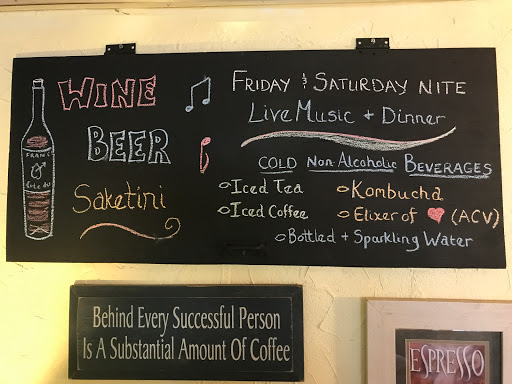 WINE
BEER
Saketini
FRIDAY & SATURDAY NITE
Live Music + Dinner
COLD Non-Alcoholic BEVERAGES
Iced Tea
Iced Coffee
Kombucha
Elixer of ❤ (ACV)
Bottled + Sparkling Water
Behind Every Successful Person
Is A Substantial Amount Of Coffee
ESPRESSO